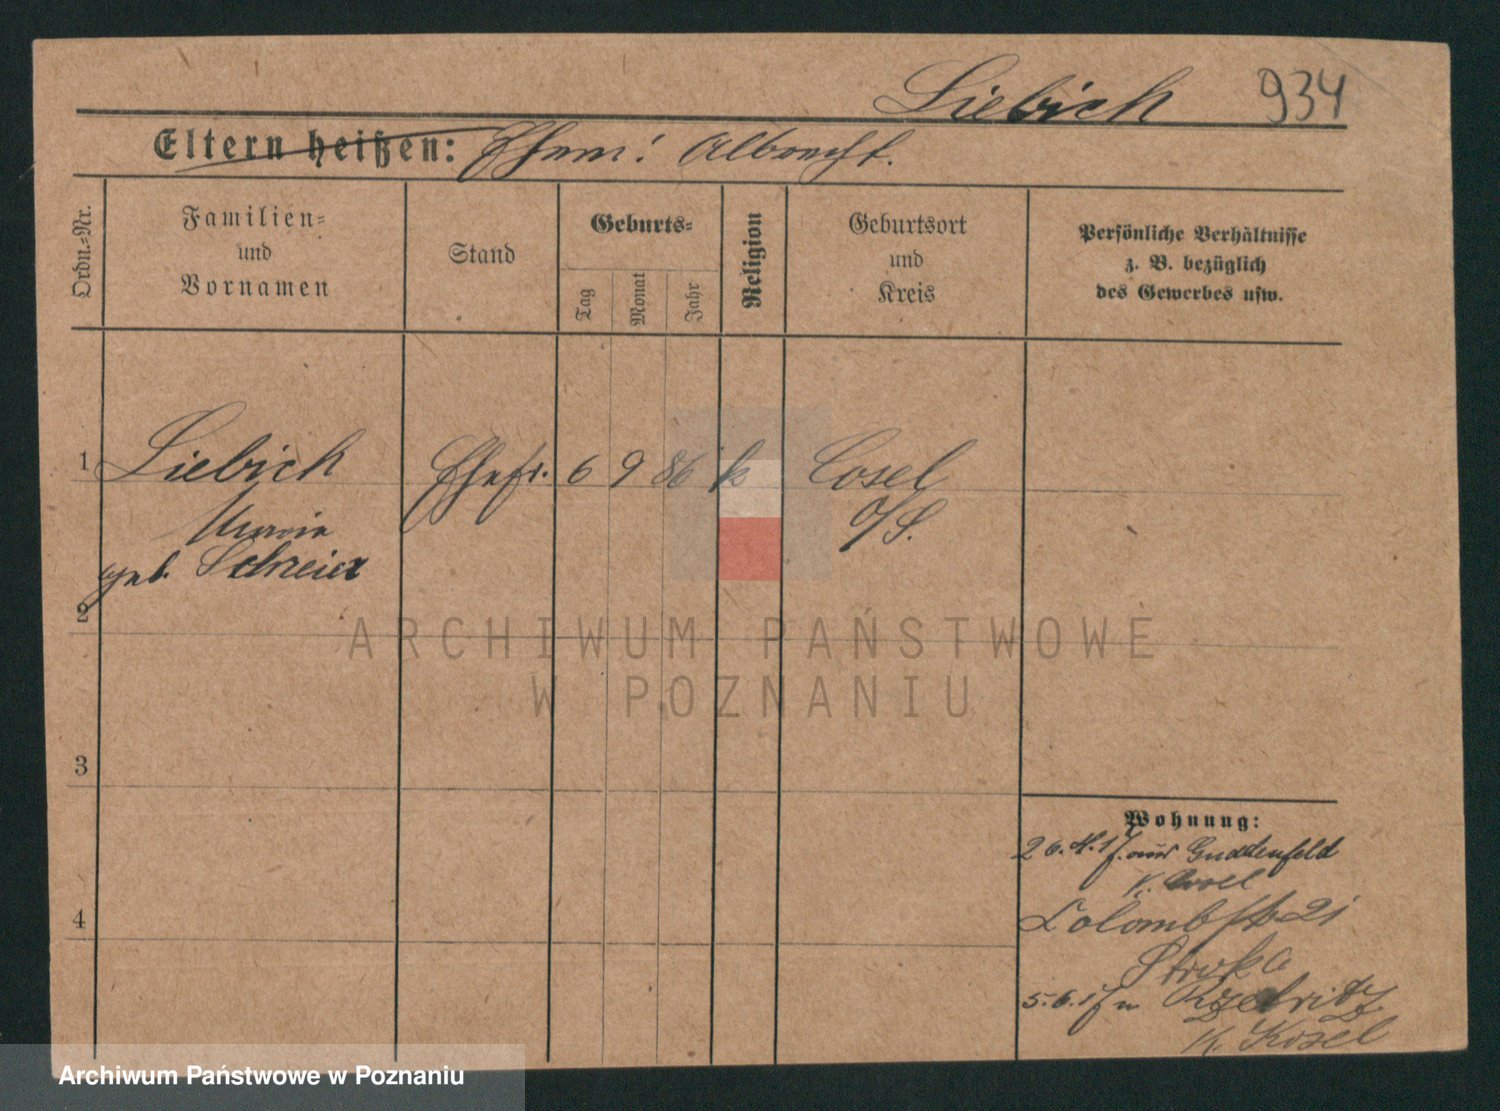 Liebich 934
Eltern heißen: Ehem: Albrecht.
Ordn.=Nr.
Familien=
und
Vornamen
Stand
Geburts=
Tag
Monat
Jahr
Religion
Geburtsort
und
Kreis
Persönliche Verhältnisse
z. B. bezüglich
des Gewerbes usw.
1 Liebich Ehefr. 6 9 86 k Cosel
Maria O/S.
geb. Schreier
2
ARCHIWUM PAŃSTWOWE
W POZNANIU
3
Wohnung:
26.4.17. aus Gnadenfeld
K. Cosel
4
Colombstr 21
5.6.17 n
K. Kosel
Archiwum Państwowe w Poznaniu